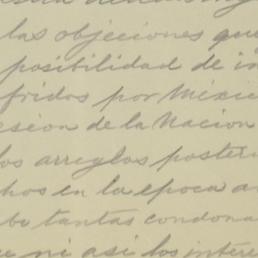 las objeciones que
posibilidad de in
fridos por Méxic
esion de la Nacion
los arreglos poster
hos en la epoca a
be tantas condona
e ni asi los intere